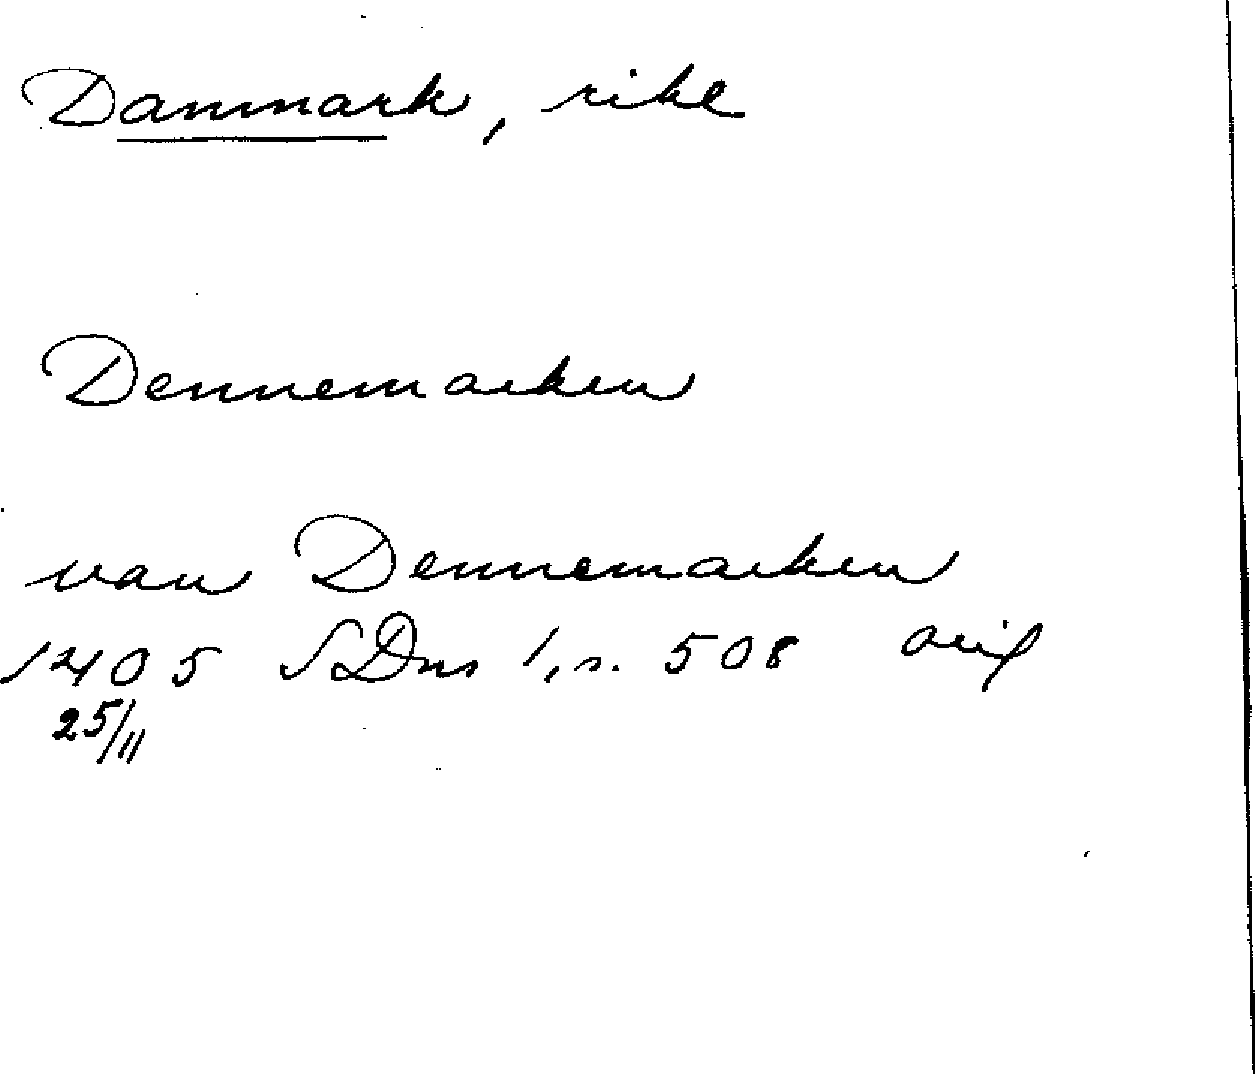 Danmark, rike
Dennemarken
van Dennemarken
1405 SDns 1, s. 508 orig
25/11